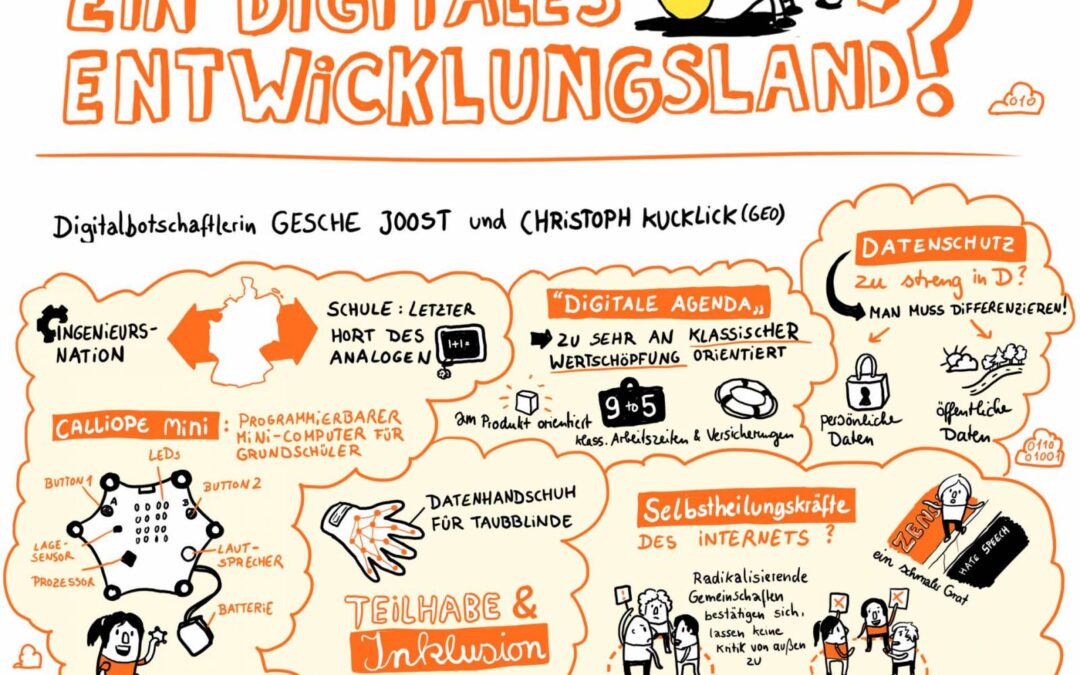 EIN DIGITALES
ENTWICKLUNGSLAND?!
010
Digitalbotschafterin GESCHE JOOST und CHRISTOPH KUCKLICK (GEO)
INGENIEURS-
NATION
SCHULE: LETZTER
HORT DES
ANALOGEN
1+1=
CALLIOPE Mini: PROGRAMMIERBARER
MINI-COMPUTER FÜR
GRUNDSCHÜLER
LEDs
BUTTON 1
BUTTON 2
A
B
LAGE-
SENSOR
PROZESSOR
LAUT-
SPRECHER
BATTERIE
"DIGITALE AGENDA"
ZU SEHR AN KLASSISCHER
WERTSCHÖPFUNG ORIENTIERT
am Produkt orientiert
9 to 5
klass. Arbeitszeiten & Versicherungen
DATENSCHUTZ
zu streng in D?
MAN MUSS DIFFERENZIEREN!
persönliche
Daten
öffentliche
Daten
0110
01001
DATENHANDSCHUH
FÜR TAUBBLINDE
TEILHABE &
Inklusion
Selbstheilungskräfte
DES INTERNETS?
ZEN!
HATE SPEECH
ein schmaler Grat
Radikalisierende
Gemeinschaften
bestätigen sich,
lassen keine
Kritik von außen
zu
!
X
X